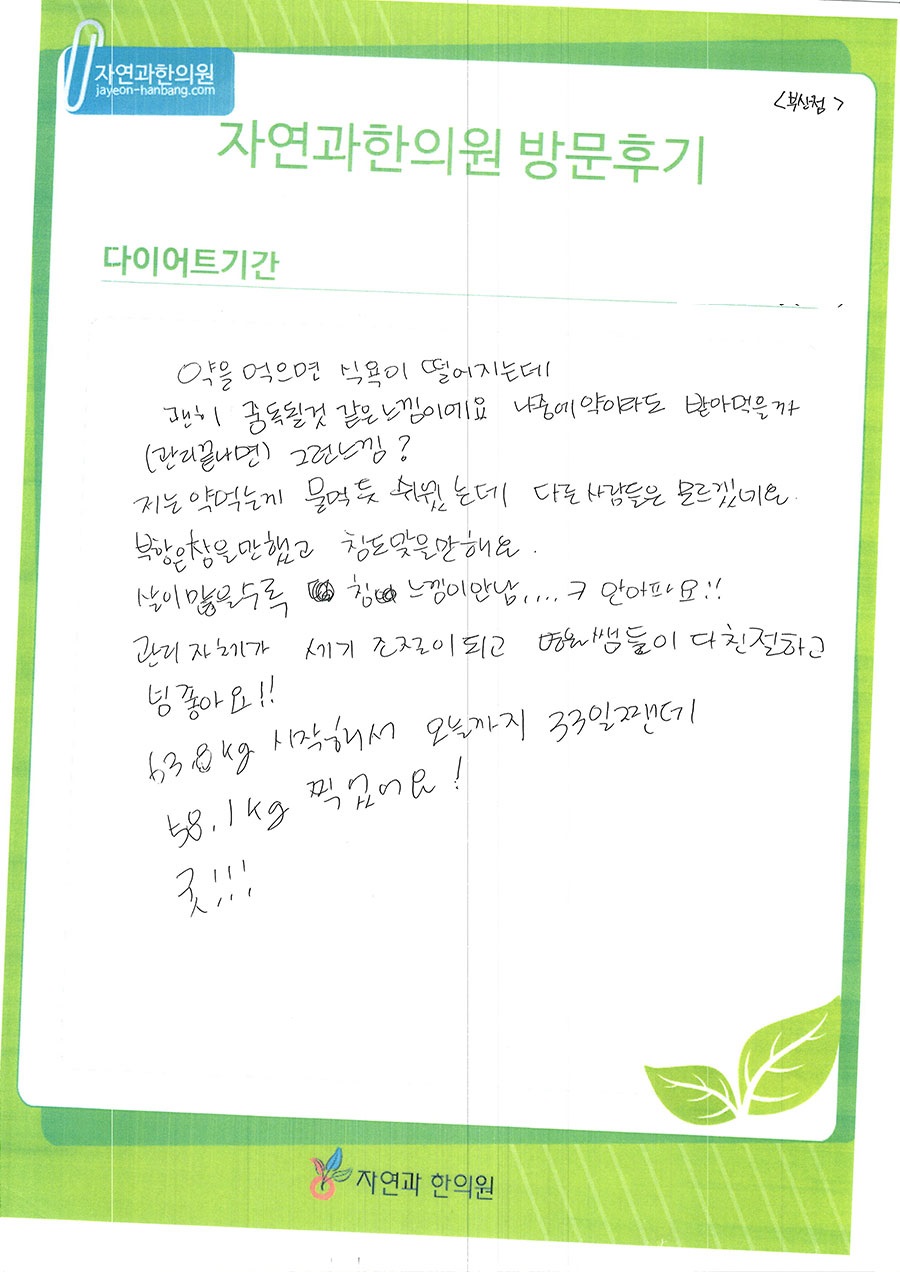 자연과한의원
jayeon-hanbang.com
<부산점>
자연과한의원 방문후기
다이어트기간
약을 먹으면 식욕이 떨어지는데
괜히 중독될것 같은느낌이에요 나중에약이라도 받아먹을까
(관리끝나면) 그런느낌?
저는 약먹는게 물먹듯 쉬웠는데 다른사람들은 모르겠네요.
부항은참을만했고 침도맞을만해요.
살이많을수록 침 느낌이안남....ㅋ 안아파요!!
관리 자체가 세기 조절이되고 쌤들이 다친절하고
넘좋아요!!
63.8kg 시작해서 오늘까지 33일짼데
58.1kg 찍었어요!
굿!!!
자연과 한의원